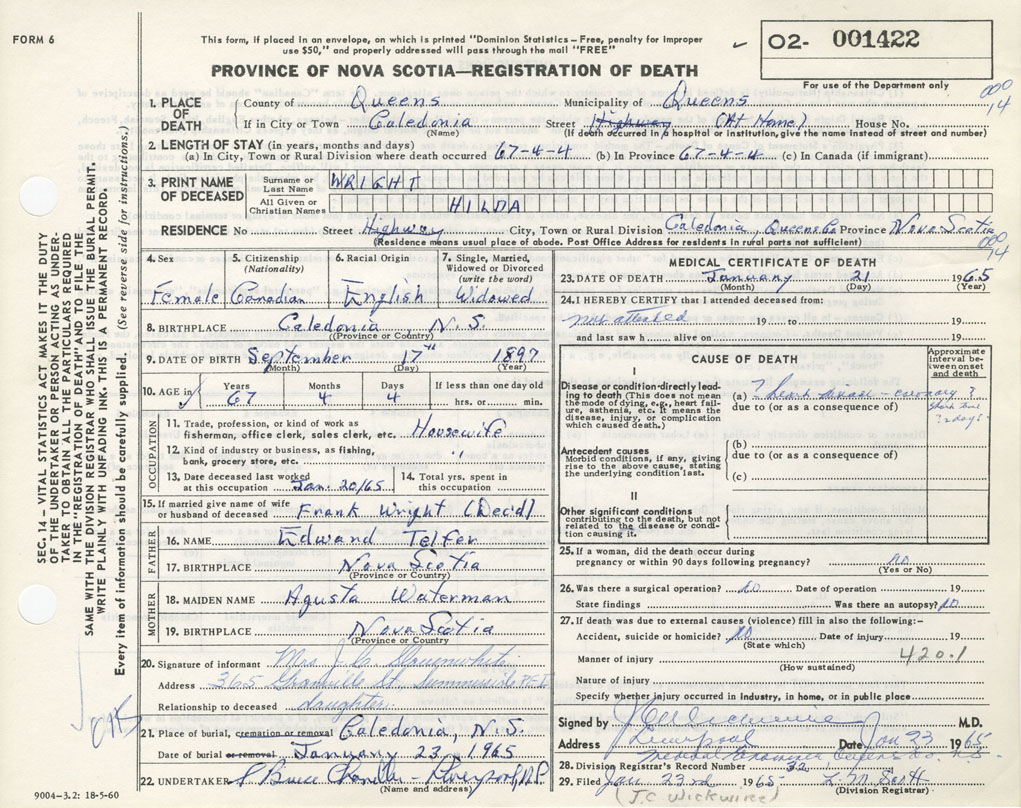 FORM 6
This form, if placed in an envelope, on which is printed "Dominion Statistics – Free, penalty for improper
use $50," and properly addressed will pass through the mail "FREE"
O2- 001422
For use of the Department only
PROVINCE OF NOVA SCOTIA—REGISTRATION OF DEATH
000
14
1. PLACE OF DEATH
County of Queens Municipality of Queens
If in City or Town Caledonia Street Highway (At Home) House No.
(Name) (If death occurred in a hospital or institution, give the name instead of street and number)
2. LENGTH OF STAY (in years, months and days)
(a) In City, Town or Rural Division where death occurred 67-4-4 (b) In Province 67-4-4 (c) In Canada (if immigrant)
3. PRINT NAME OF DECEASED
Surname or Last Name WRIGHT
All Given or Christian Names HILDA
RESIDENCE No Street Highway City, Town or Rural Division Caledonia, Queens Co Province Nova Scotia
(Residence means usual place of abode. Post Office Address for residents in rural parts not sufficient)
000
14
4. Sex Female
5. Citizenship (Nationality) Canadian
6. Racial Origin English
7. Single, Married, Widowed or Divorced (write the word) Widowed
8. BIRTHPLACE Caledonia, N.S.
(Province or Country)
9. DATE OF BIRTH September 17th 1897
(Month) (Day) (Year)
10. AGE in Years 67 Months 4 Days 4 If less than one day old hrs. or min.
OCCUPATION
11. Trade, profession, or kind of work as
fisherman, office clerk, sales clerk, etc. Housewife
12. Kind of industry or business, as fishing,
bank, grocery store, etc. "
13. Date deceased last worked
at this occupation Jan. 20/65
14. Total yrs. spent in
this occupation
15. If married give name of wife
or husband of deceased Frank Wright (Dec'd)
FATHER
16. NAME Edward Telfer
17. BIRTHPLACE Nova Scotia
(Province or Country)
MOTHER
18. MAIDEN NAME Agusta Waterman
19. BIRTHPLACE Nova Scotia
(Province or Country)
20. Signature of informant Mrs. J. C.
Address 365 Granville St, Summerside P.E.I.
Relationship to deceased daughter
21. Place of burial, cremation or removal Caledonia, N.S.
Date of burial or removal January 23, 1965
22. UNDERTAKER Bruce Chandler - Liverpool, N.S.
(Name and address)
9004-3.2: 18-5-60
MEDICAL CERTIFICATE OF DEATH
23. DATE OF DEATH January 21 1965
(Month) (Day) (Year)
24. I HEREBY CERTIFY that I attended deceased from:
not attended 19 to 19
and last saw h alive on 19
CAUSE OF DEATH
Approximate interval between onset and death
I
Disease or condition directly lead-
ing to death (This does not mean
the mode of dying, e.g., heart fail-
ure, asthenia, etc. It means the
disease, injury, or complication
which caused death.)
(a) ? - coronary ?
due to (or as a consequence of)
? days?
Antecedent causes
Morbid conditions, if any, giving
rise to the above cause, stating
the underlying condition last.
(b)
due to (or as a consequence of)
(c)
II
Other significant conditions
contributing to the death, but not
related to the disease or condi-
tion causing it.
25. If a woman, did the death occur during
pregnancy or within 90 days following pregnancy? no
(Yes or No)
26. Was there a surgical operation? no Date of operation 19
State findings Was there an autopsy? no
27. If death was due to external causes (violence) fill in also the following:–
Accident, suicide or homicide? no Date of injury 19
(State which)
Manner of injury 420.1
(How sustained)
Nature of injury
Specify whether injury occurred in industry, in home, or in public place
Signed by J C Wickwire M.D.
Address Liverpool Date Jan 23 1965
Medical Examiner Queens Co. N.S.
28. Division Registrar's Record Number 32
29. Filed Jan 23rd 1965 L. M. Scott
(Division Registrar)
(J.C. Wickwire)
SEC. 14 – VITAL STATISTICS ACT MAKES IT THE DUTY
OF THE UNDERTAKER OR PERSON ACTING AS UNDER-
TAKER TO OBTAIN ALL THE PARTICULARS REQUIRED
IN THE "REGISTRATION OF DEATH" AND TO FILE THE
SAME WITH THE DIVISION REGISTRAR WHO SHALL ISSUE THE BURIAL PERMIT.
WRITE PLAINLY WITH UNFADING INK. THIS IS A PERMANENT RECORD.
Every item of information should be carefully supplied. (See reverse side for instructions.)